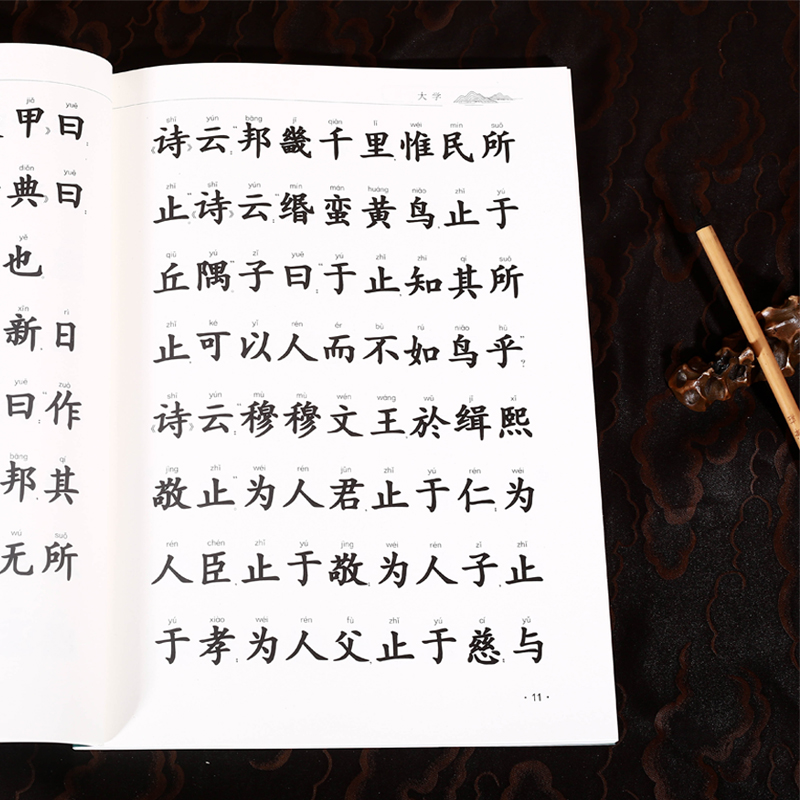 jiǎ yuē
甲》曰：
diǎn yuē
典》曰：
yě
也
xīn rì
新日
yuē zuò
曰：“作
bāng qí
邦其
wú suǒ
无所
大学
shī yún bāng jī qiān lǐ wéi mín suǒ
《诗》云：“邦畿千里，惟民所
zhǐ shī yún mín mán huáng niǎo zhǐ yú
止。”《诗》云：“缗蛮黄鸟，止于
qiū yú zǐ yuē yú zhǐ zhī qí suǒ
丘隅。”子曰：“于止，知其所
zhǐ kě yǐ rén ér bù rú niǎo hū
止，可以人而不如鸟乎？”
shī yún mù mù wén wáng wū jī xī
《诗》云：“穆穆文王，於缉熙
jìng zhǐ wéi rén jūn zhǐ yú rén wéi
敬止。”为人君，止于仁；为
rén chén zhǐ yú jìng wéi rén zǐ zhǐ
人臣，止于敬；为人子，止
yú xiào wéi rén fù zhǐ yú cí yǔ
于孝；为人父，止于慈；与
·11·